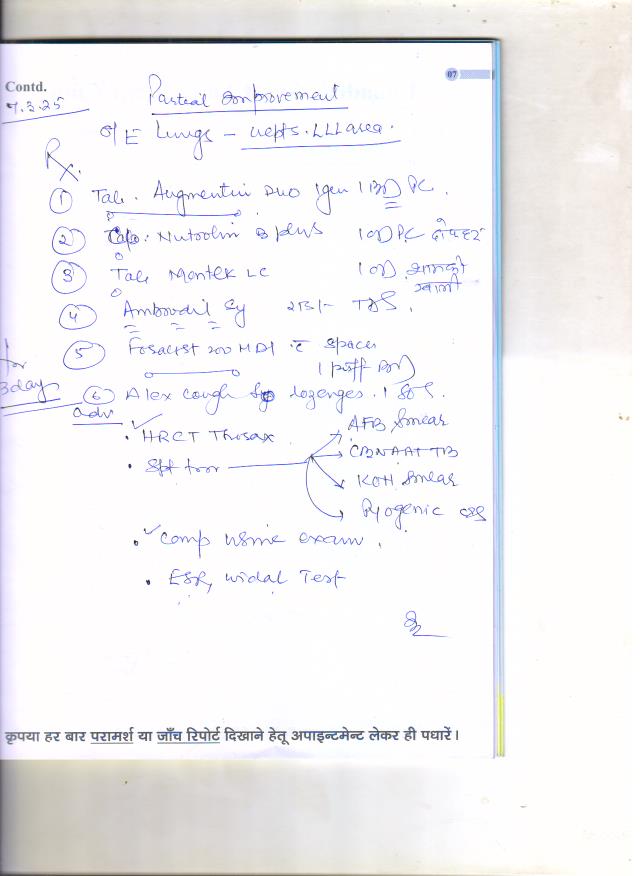 07
Contd.
7.3.25
Partial improvement
o/E Lungs – crepts. LLL area.
Rx.
① Tab. Augmentin Duo 1gm 1 BD PC.
② Cap. Nutrolin B plus 1 OD PC दोपहर
③ Tab Montek LC 1 OD शामको खाली
④ Ambrodil Sy 2 TDS.
⑤ 200 MDI c̄ spacer
1 puff BD
for
3 day
⑥ Alex cough lozenges. 1 SOS.
adv
• HRCT Thorax
AFB Smear
• Spt for
CBNAAT TB
KOH Smear
Pyogenic c/s
• Comp urine exam.
• ESR, Widal Test
कृपया हर बार परामर्श या जाँच रिपोर्ट दिखाने हेतू अपाइन्टमेन्ट लेकर ही पधारें।